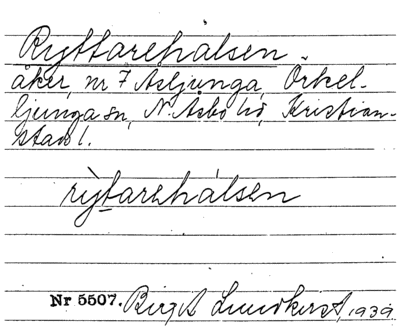 Ryttarehalsen
åker, nr 7 Asljunga, Örkel-
ljunga sn, N. Åsbo hd, Kristian-
stad l.
rỳtarehálsen
Nr 5507. Birgit Lundkvist, 1939